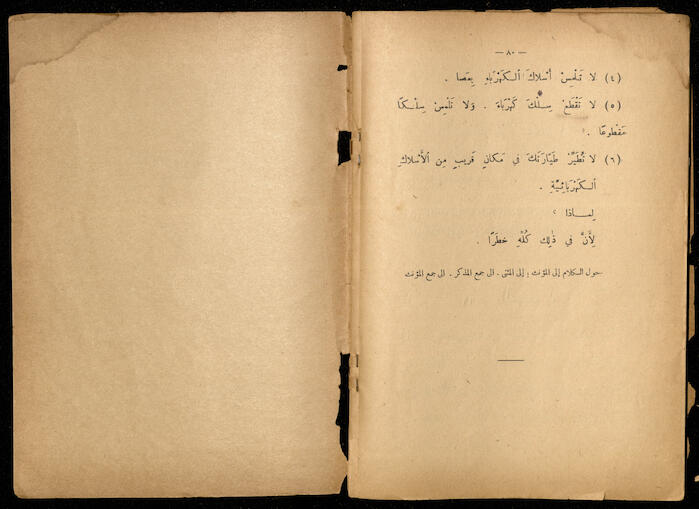 — ٨٠ —
(٤) لا تَلْمِسْ أَسْلاكَ الْكَهْرَباءِ بِعَصا .
(٥) لا تَقْطَعْ سِلْكَ كَهْرَباءَ . وَلا تَلْمِسْ سِلْكًا
مَقْطوعًا .
(٦) لا تُطَيِّرْ طَيّارَتَكَ في مَكانٍ قَريبٍ مِنَ الْأَسْلاكِ
الْكَهْرَبائِيَّةِ .
لِماذا ؟
لِأَنَّ في ذٰلِكَ كُلِّهِ خَطَرًا .
حول الكلام إلى المؤنث ؛ إلى المثنى . الى جمع المذكر . الى جمع المؤنث